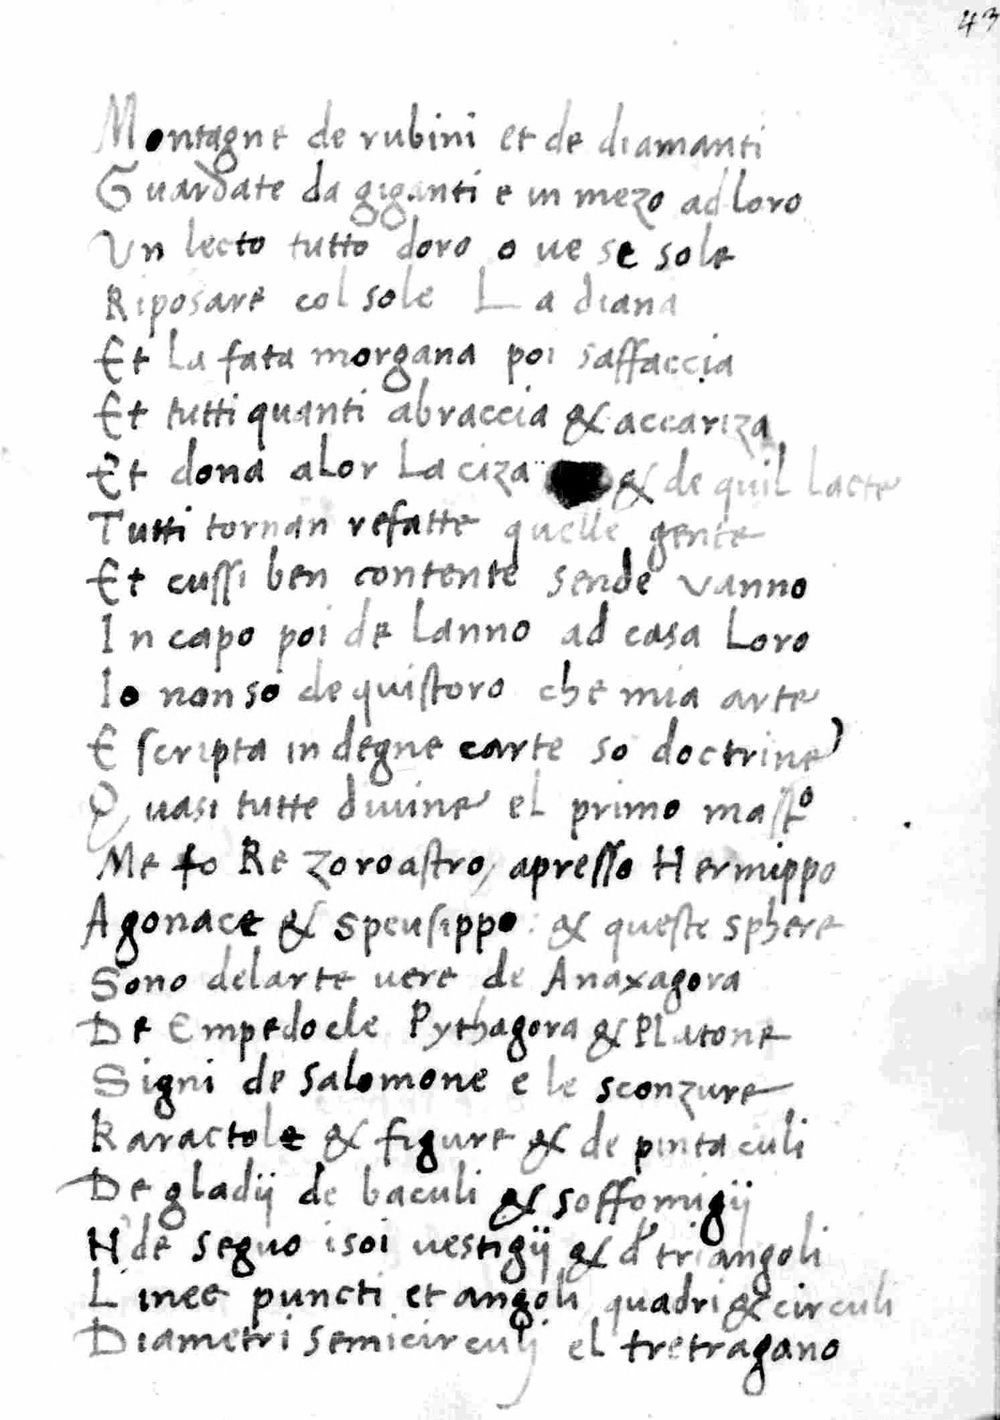 43
Montagne de rubini et de diamanti
Guardate da giganti e in mezo ad loro
Un lecto tutto doro o ue se sole
Riposare col sole La diana
Et La fata morgana poi saffaccia
Et tutti quanti abraccia & accariza
Et dona alor La ciza & de quil lacte
Tutti tornan refatte quelle gente
Et cussi ben contente sende vanno
In capo poi de lanno ad casa Loro
Io non so de quistoro che mia arte
E scripta in degne carte so doctrine
Quasi tutte diuine el primo mastº
Me fo Re Zoroastro, apresso Hermippo
Agonace & Speusippo: & queste sphere
Sono delarte uere de Anaxagora
De Empedocle Pythagora & Platone
Signi de Salomone e le sconzure
Karactole & figure & de pintaculi
De gladij de baculi & soffomigij
Hde seguo i soi uestigij & d' triangoli
Linee puncti et angoli quadri & circuli
Diametri semicirculj el tretragano